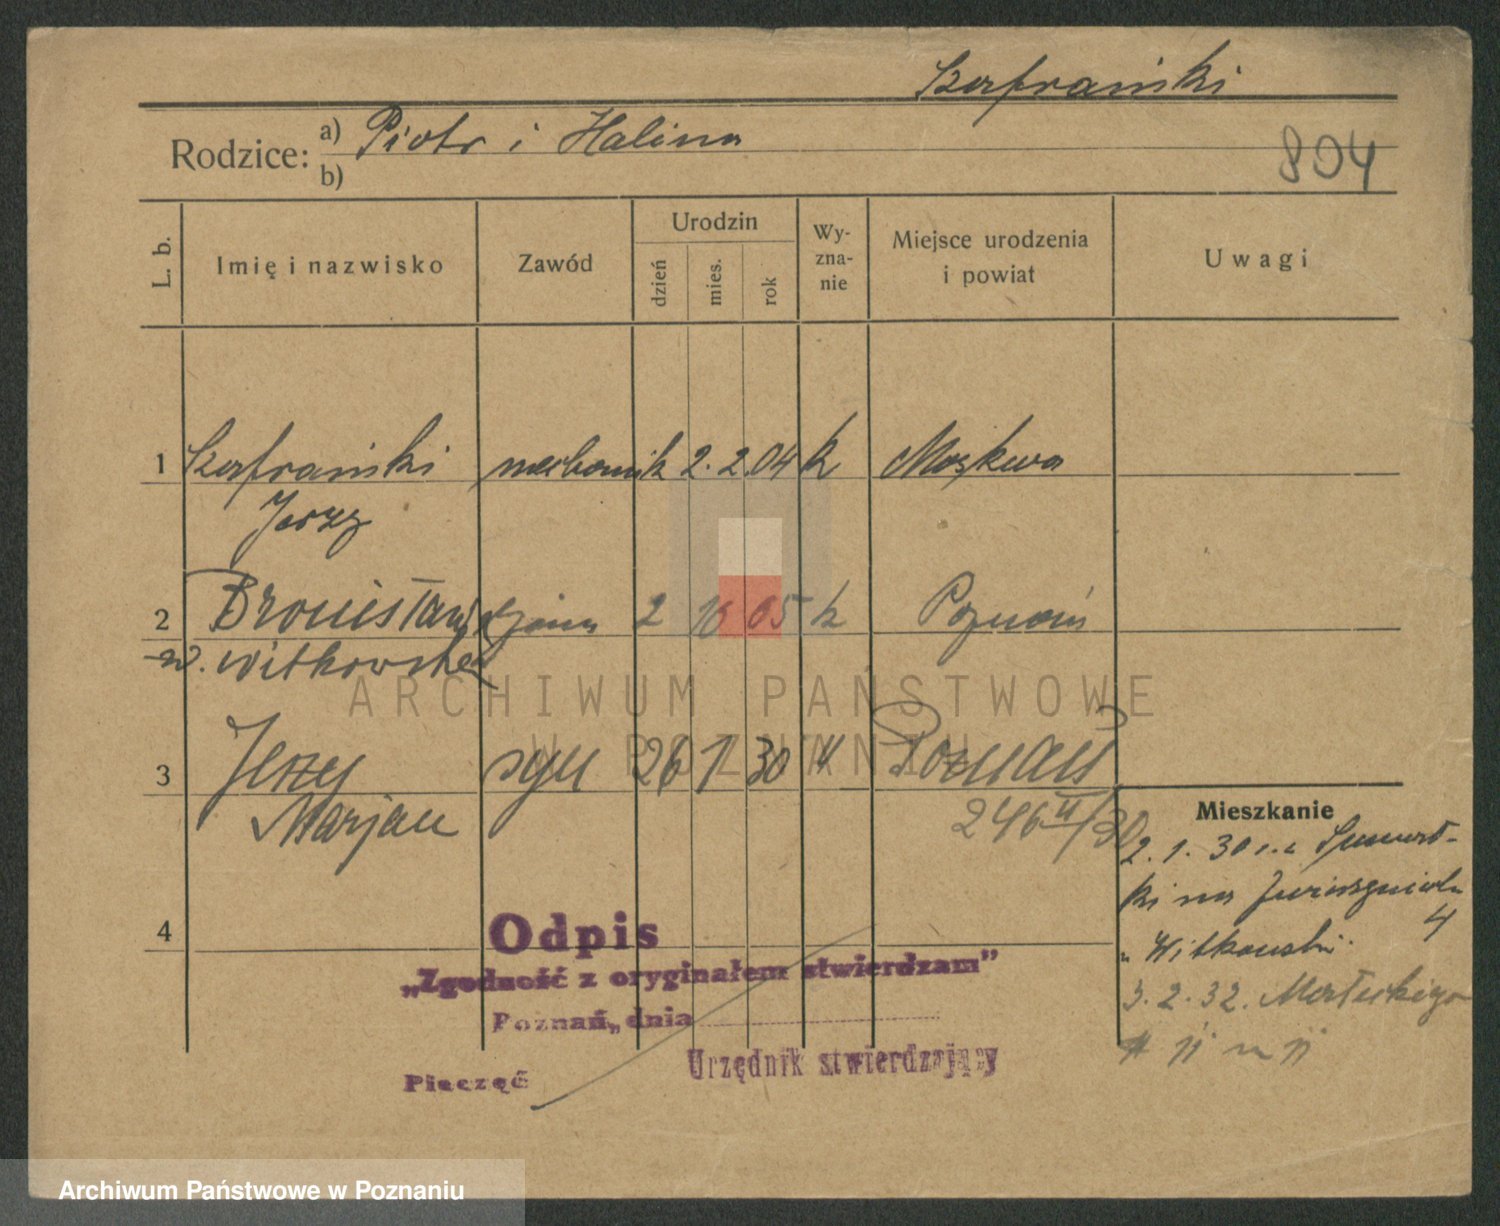 Szafrański
Rodzice: a) Piotr i Halina
b)
804
L. b.
Imię i nazwisko
Zawód
Urodzin
dzień
mies.
rok
Wy-
zna-
nie
Miejsce urodzenia
i powiat
Uwagi
1 Szafrański mechanik 2. 2. 04 k Moskwa
Jerzy
2 Bronisława 2 10 05 k Poznań
w. Witkowska
3 Jerzy syn 26 1 30 " Poznań
Marjan 246 II/30
4
Mieszkanie
2. 1. 30
4
" Witkowski
3. 2. 32. Małeckiego
Odpis
„Zgodność z oryginałem stwierdzam”
Poznań, dnia
Urzędnik stwierdzający
Pieczęć
ARCHIWUM PAŃSTWOWE
W POZNANIU
Archiwum Państwowe w Poznaniu